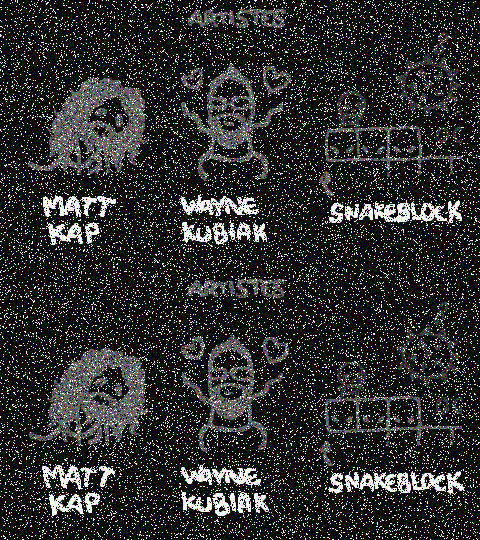 ARTISTES
MATT
KAP
WAYNE
KUBIAK
SNAKEBLOCK
ARTISTES
MATT
KAP
WAYNE
KUBIAK
SNAKEBLOCK